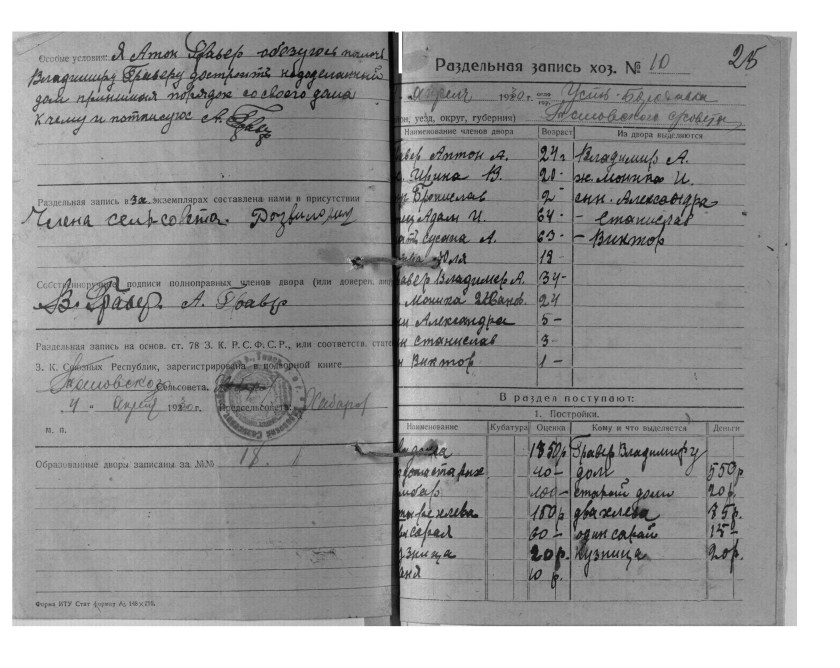 Особые условия: Я Атон Гравер обозуюсь
Владимиру Граверу достроить недоделанный
дом принимая порядок со своего дома
к чему и потписуюс А. Гравер
Раздельная запись в 3х экземплярах составлена нами в присутствии
Члена сельсовета
Собственноручные подписи полноправных членов двора (или доверен. лиц
В. Гравер А. Гравер
Раздельная запись на основ. ст. 78 З. К. Р.С.Ф.С.Р., или соответств. стате
З. К. Союзных Республик, зарегистрирована в подворной книге
Сельсовета.
4 " Апреля 1930 г. Предсельсовета
м. п.
Образованные дворы записаны за №№ 18
Форма НТУ Стат формат А5 148×218.
25
Раздельная запись хоз. № 10
Апреля 1930 г.
он, уезд, округ, губерния)
Наименование членов двора Возраст Из двора выделяются
авер Антон А. 27 г Владимир А.
Ирина В. 20 - ж Моника И.
Бронислав 2 - сын. Александра
Адам И. 64 - - станислав
сусана А. 63 - - Виктор
Юля 19
авер Владимер А. 34 -
Моника Иванов. 24
Александра 5 -
н станислав 3 -
н Виктов 1 -
В раздел поступают:
1. Постройки.
Наименование Кубатура Оценка Кому и что выделяется Деньги
Гравер Владимиру
40 - дом 550 р
мбар 100 - старой дом 20 р.
хлева 150 р два хлева 35 р.
сарая 60 - один сарай 15 -
знища 20 р. кузница 20 р.
аня 10 р.